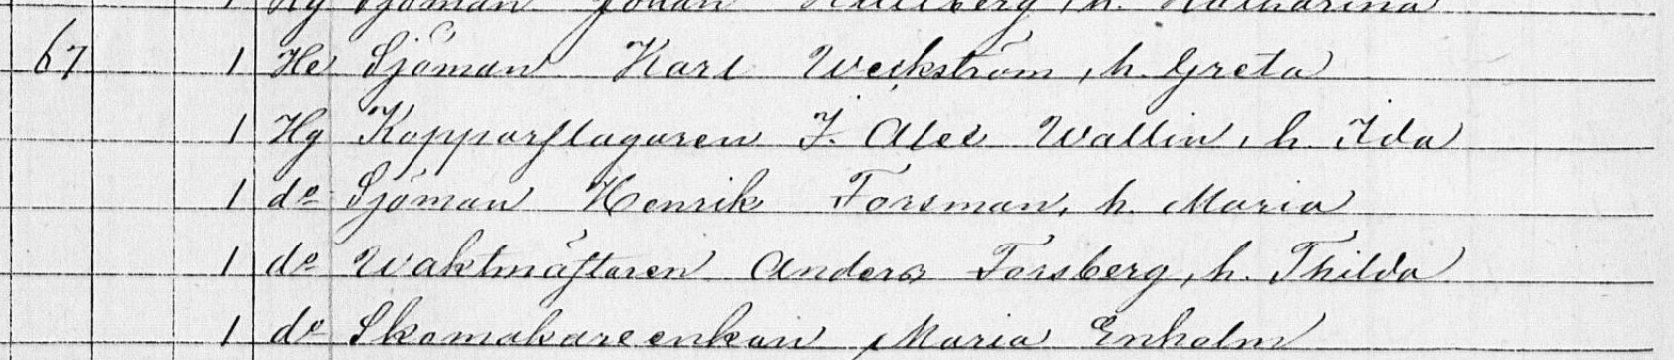 1 Hg Sjöman Johan h. Katharina
67 1 He Sjöman Karl Weckström, h. Greta
1 Hg Kopparslagaren J. Alex Wallin, h. Ida
1 do Sjöman Henrik Forsman, h. Maria
1 do Waktmästaren Anders Forsberg, h. Thilda
1 do Skomakareenkan Maria Enholm